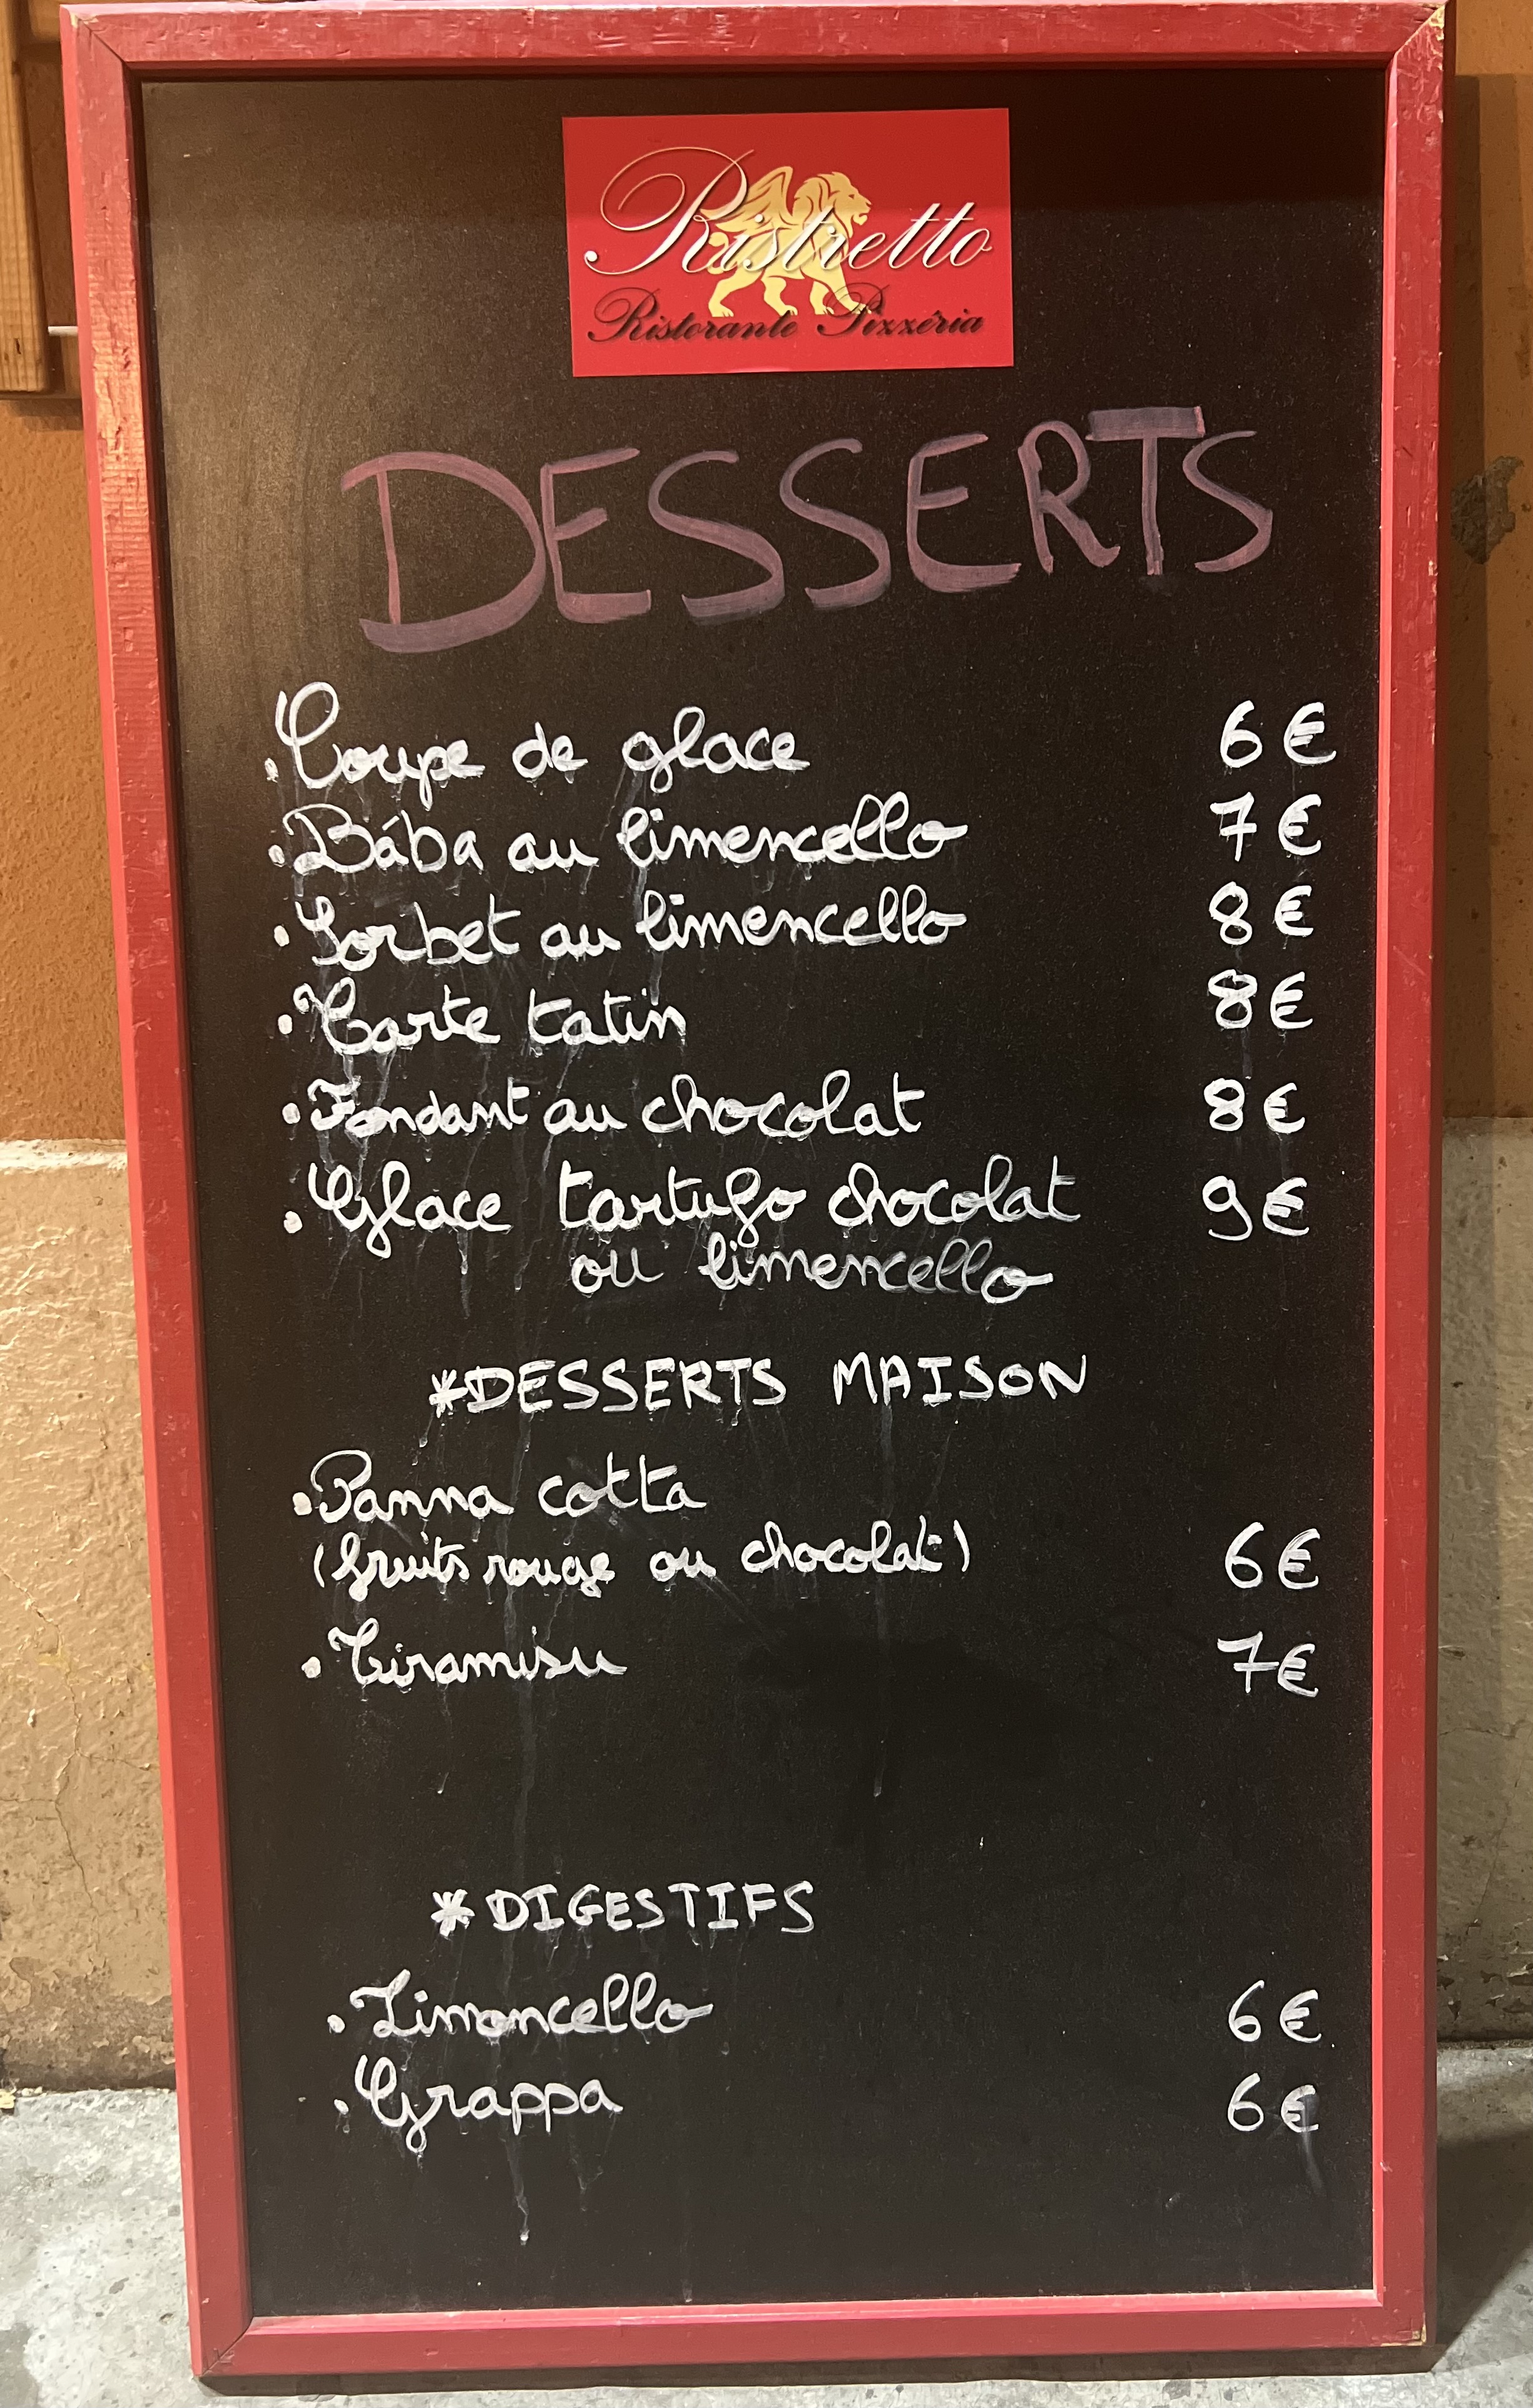 Ristretto
Ristorante Pizzéria
DESSERTS
• Coupe de glace 6 €
• Bába au limencello 7 €
• Sorbet au limencello 8 €
• Tarte tatin 8 €
• Fondant au chocolat 8 €
• Glace tartufo chocolat 9 €
ou limencello
*DESSERTS MAISON
• Panna cotta
(fruits rouge ou chocolat) 6 €
• Tiramisu 7 €
* DIGESTIFS
• Limoncello 6 €
• Grappa 6 €